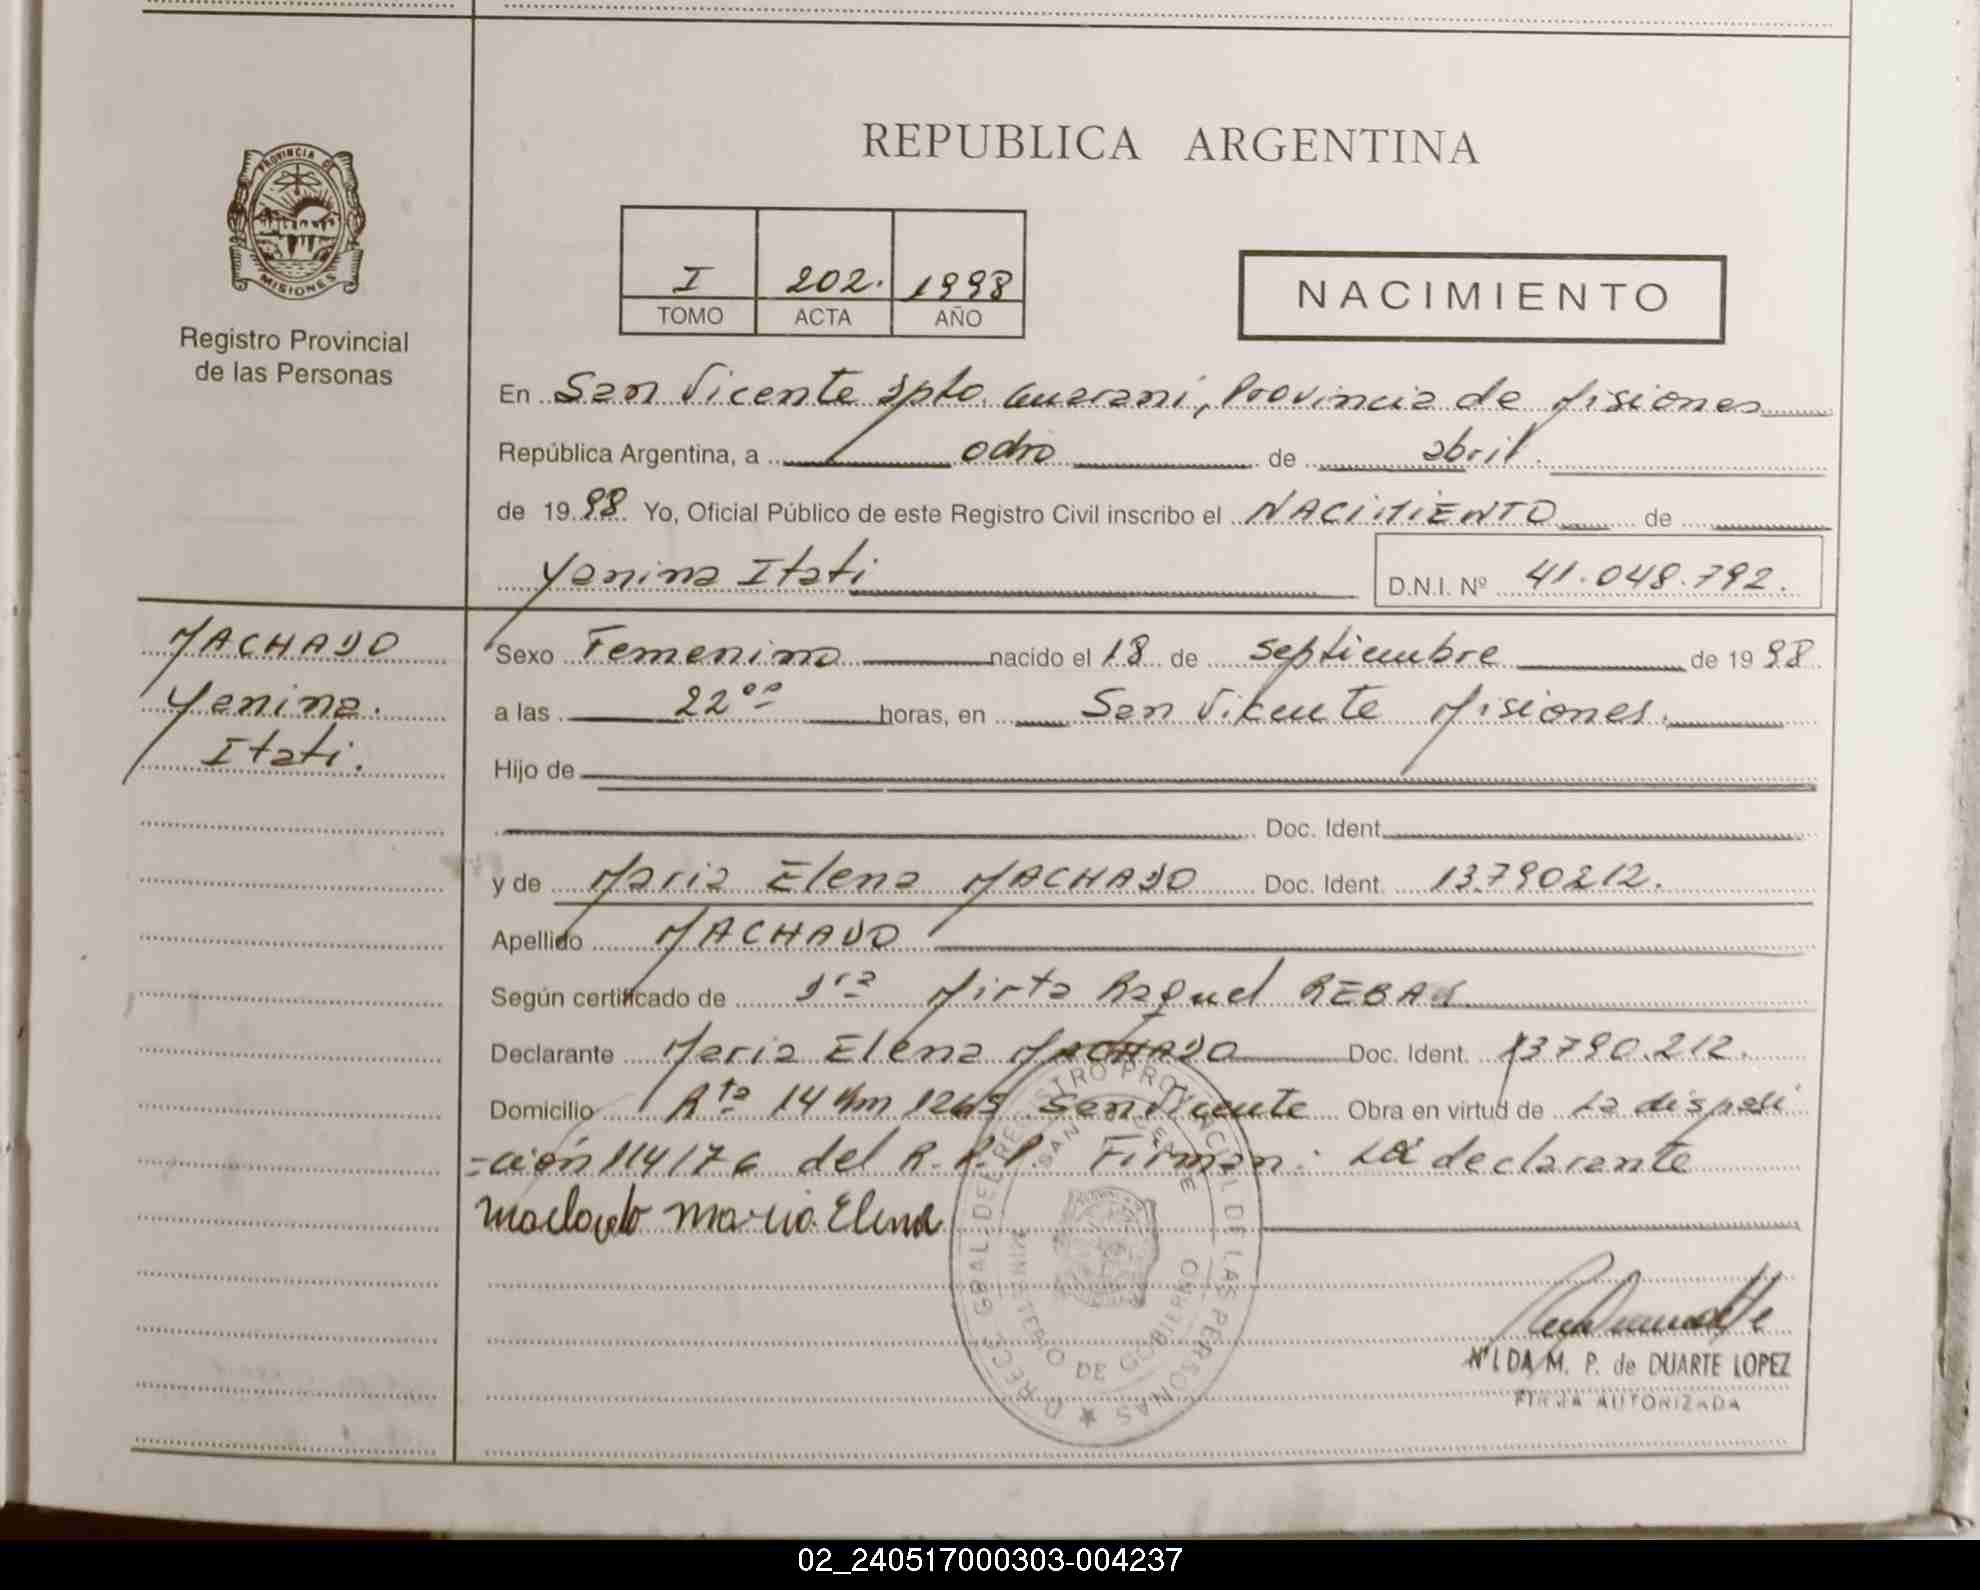 REPUBLICA ARGENTINA
PROVINCIA DE
MISIONES
Registro Provincial
de las Personas
I 202. 1998
TOMO ACTA AÑO
NACIMIENTO
En San Vicente Dpto. Guarani, Provincia de Misiones
República Argentina, a ocho de abril
de 1998 Yo, Oficial Público de este Registro Civil inscribo el NACIMIENTO de
Yanina Itati D.N.I. Nº 41.048.792.
MACHADO
Yanina.
Itati.
Sexo Femenino nacido el 18 de Septiembre de 1998
a las 22°° horas, en San Vicente Misiones.
Hijo de
Doc. Ident.
y de Maria Elena MACHADO Doc. Ident. 13.790212.
Apellido MACHADO
Según certificado de Dra Mirta Raquel
Declarante Maria Elena MACHADO Doc. Ident. 13790.212.
Domicilio Rta 14 Km 1265 San Vicente Obra en virtud de La disposi
=ción 114/76 del R.P.P. Firman: La declarante
Machado Maria Elena
DIRECC. GRAL DEL REGISTRO PROVINCIAL DE LAS PERSONAS
SAN VICENTE
MINISTERIO DE GOBIERNO
NILDA M. P. de DUARTE LOPEZ
FIRMA AUTORIZADA
02_240517000303-004237